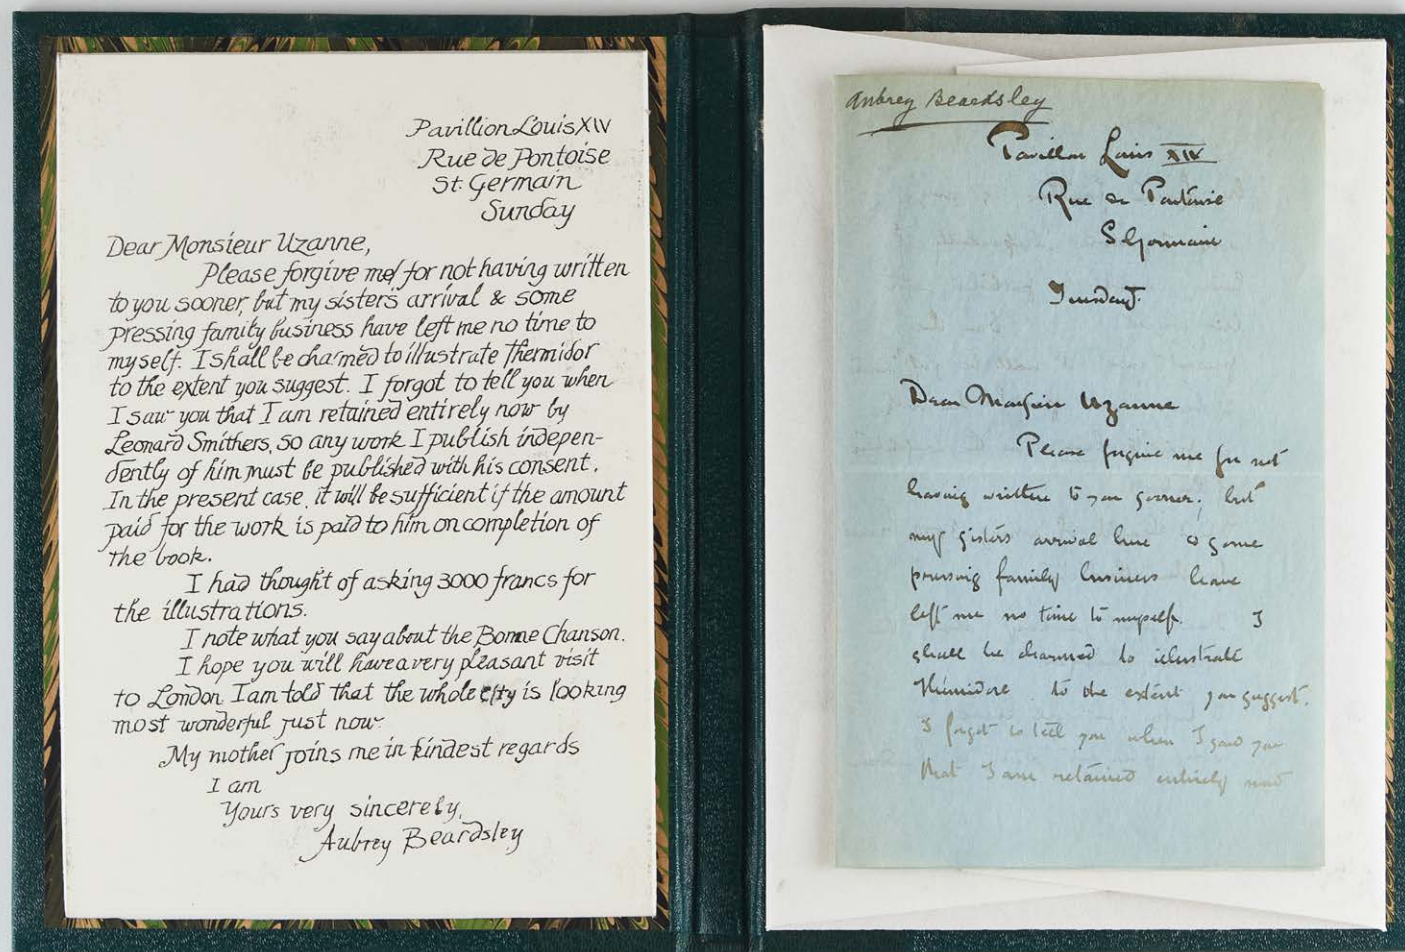 Pavillion Louis XIV
Rue de Pontoise
St. Germain
Sunday
Dear Monsieur Uzanne,
Please forgive me for not having written
to you sooner, but my sisters arrival & some
pressing family business have left me no time to
myself. I shall be charmed to illustrate Thermidor
to the extent you suggest. I forgot to tell you when
I saw you that I am retained entirely now by
Leonard Smithers, so any work I publish indepen-
dently of him must be published with his consent.
In the present case, it will be sufficient if the amount
paid for the work is paid to him on completion of
the book.
I had thought of asking 3000 francs for
the illustrations.
I note what you say about the Bonne Chanson.
I hope you will have a very pleasant visit
to London. I am told that the whole city is looking
most wonderful just now.
My mother joins me in kindest regards
I am
Yours very sincerely,
Aubrey Beardsley
Aubrey Beardsley
Pavillon Louis XIV
Rue de Pontoise
S Germain
Dear Monsieur Uzanne
Please forgive me for not
having written to you sooner; but
my sisters arrival here & some
pressing family business have
left me no time to myself. I
shall be charmed to illustrate
Thermidore to the extent you suggest.
I forgot to tell you when I saw you
that I am retained entirely now